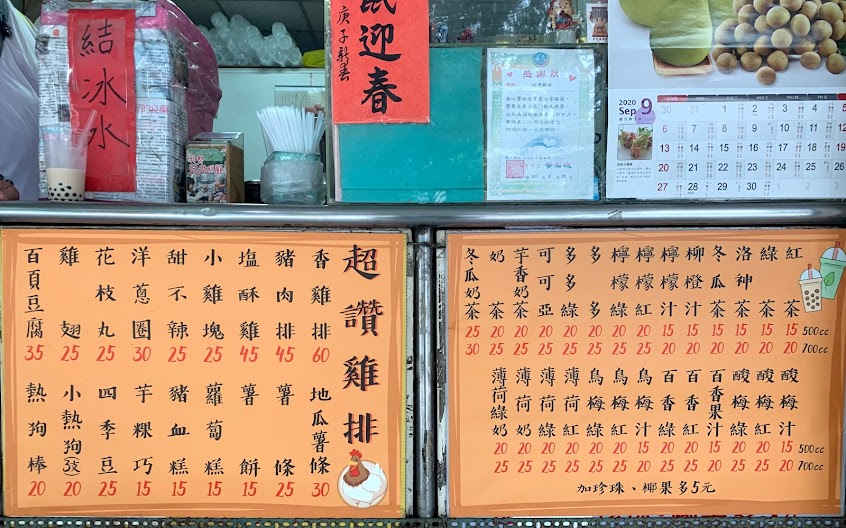 結冰水
庚子新春
迎春
感謝狀
2020
Sep 9
30 31 1 2 3 4 5
6 7 8 9 10 11 12
13 14 15 16 17 18 19
20 21 22 23 24 25 26
27 28 29 30
超讚雞排
香雞排 60
豬肉排 45
塩酥雞 45
小雞塊 25
甜不辣 25
洋蔥圈 30
花枝丸 25
雞翅 25
百頁豆腐 35
地瓜薯條 30
薯條 25
薯餅 15
蘿蔔糕 15
豬血糕 15
芋粿巧 15
四季豆 25
小熱狗 20
熱狗棒 20
500cc
700cc
紅茶 15 20
綠茶 15 20
洛神茶 15 20
冬瓜茶 15 20
柳橙汁 15 20
檸檬汁 15 20
檸檬紅 20 25
檸檬綠 20 25
多多 20 25
多多綠 20 25
可可亞 20 25
芋香奶茶 20 25
奶茶 20 25
冬瓜奶茶 25 30
500cc
700cc
酸梅汁 15 20
酸梅紅 20 25
酸梅綠 20 25
百香果汁 15 20
百香紅 20 25
百香綠 20 25
烏梅汁 15 20
烏梅紅 20 25
烏梅綠 20 25
薄荷紅 20 25
薄荷綠 20 25
薄荷奶 20 25
薄荷綠奶 20 25
加珍珠、椰果多5元